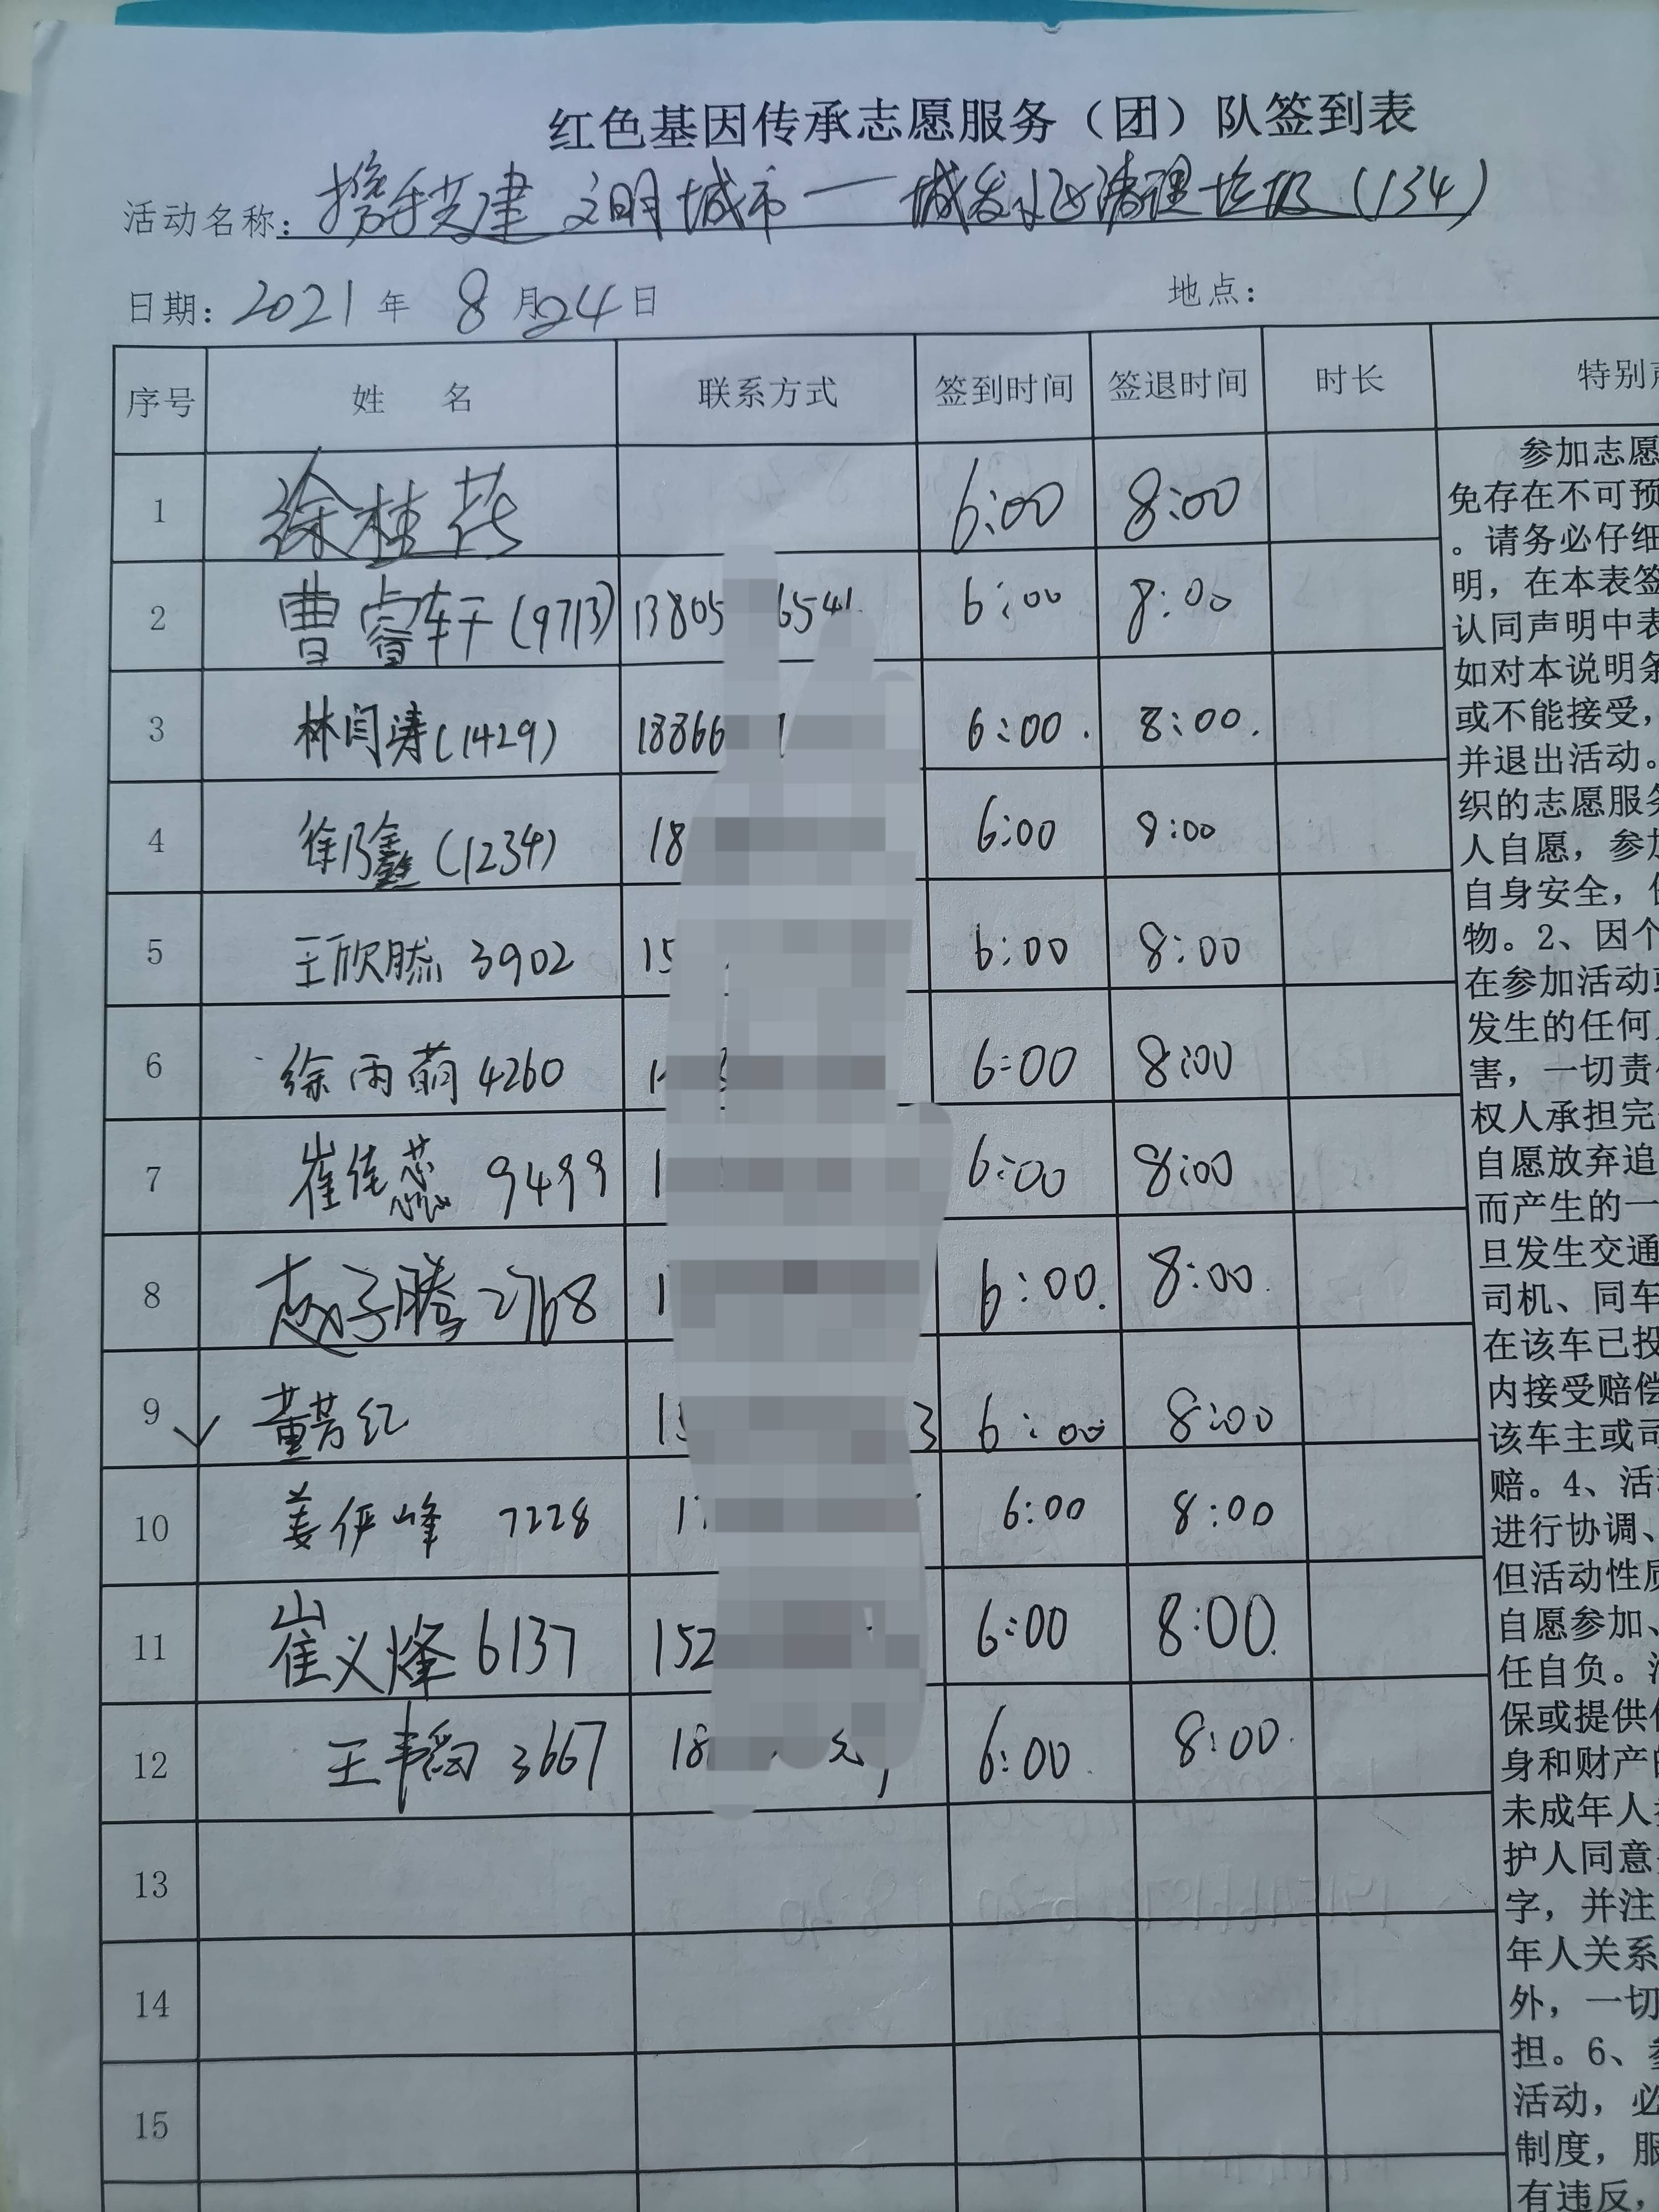 红色基因传承志愿服务（团）队签到表
活动名称：携手共建 文明城市——城发 清理垃圾(134)
日期：2021年 8月24日 地点：
序号 姓 名 联系方式 签到时间 签退时间 时长 特别
1 徐桂花 6:00 8:00
2 曹睿轩(9713) 13805 6541 6:00 8:00
3 林闫涛(1429) 18866 6:00. 8:00.
4 徐乃鑫(1234) 18 6:00 8:00
5 王欣 3902 15 6:00 8:00
6 徐雨萌 4260 6:00 8:00
7 崔佳蕊 9499 1 6:00 8:00
8 赵子腾 2768 1 6:00. 8:00.
9 董芳红 15 3 6:00 8:00
10 姜伊峰 7228 1 6:00 8:00
11 崔义烽 6137 152 6:00 8:00.
12 王韦韬 3667 18 6:00 8:00.
13
14
15
参加志愿
免存在不可预
。请务必仔细
明，在本表签
认同声明中表
如对本说明条
或不能接受，
并退出活动。
织的志愿服务
人自愿，参加
自身安全，
物。2、因个
在参加活动或
发生的任何
害，一切责
权人承担完
自愿放弃追
而产生的一
旦发生交通
司机、同车
在该车已投
内接受赔偿
该车主或司
赔。4、活
进行协调、
但活动性质
自愿参加、
任自负。
保或提供
身和财产的
未成年人
护人同意
字，并注
年人关系
外，一切
担。6、
活动，必
制度，服
有违反，